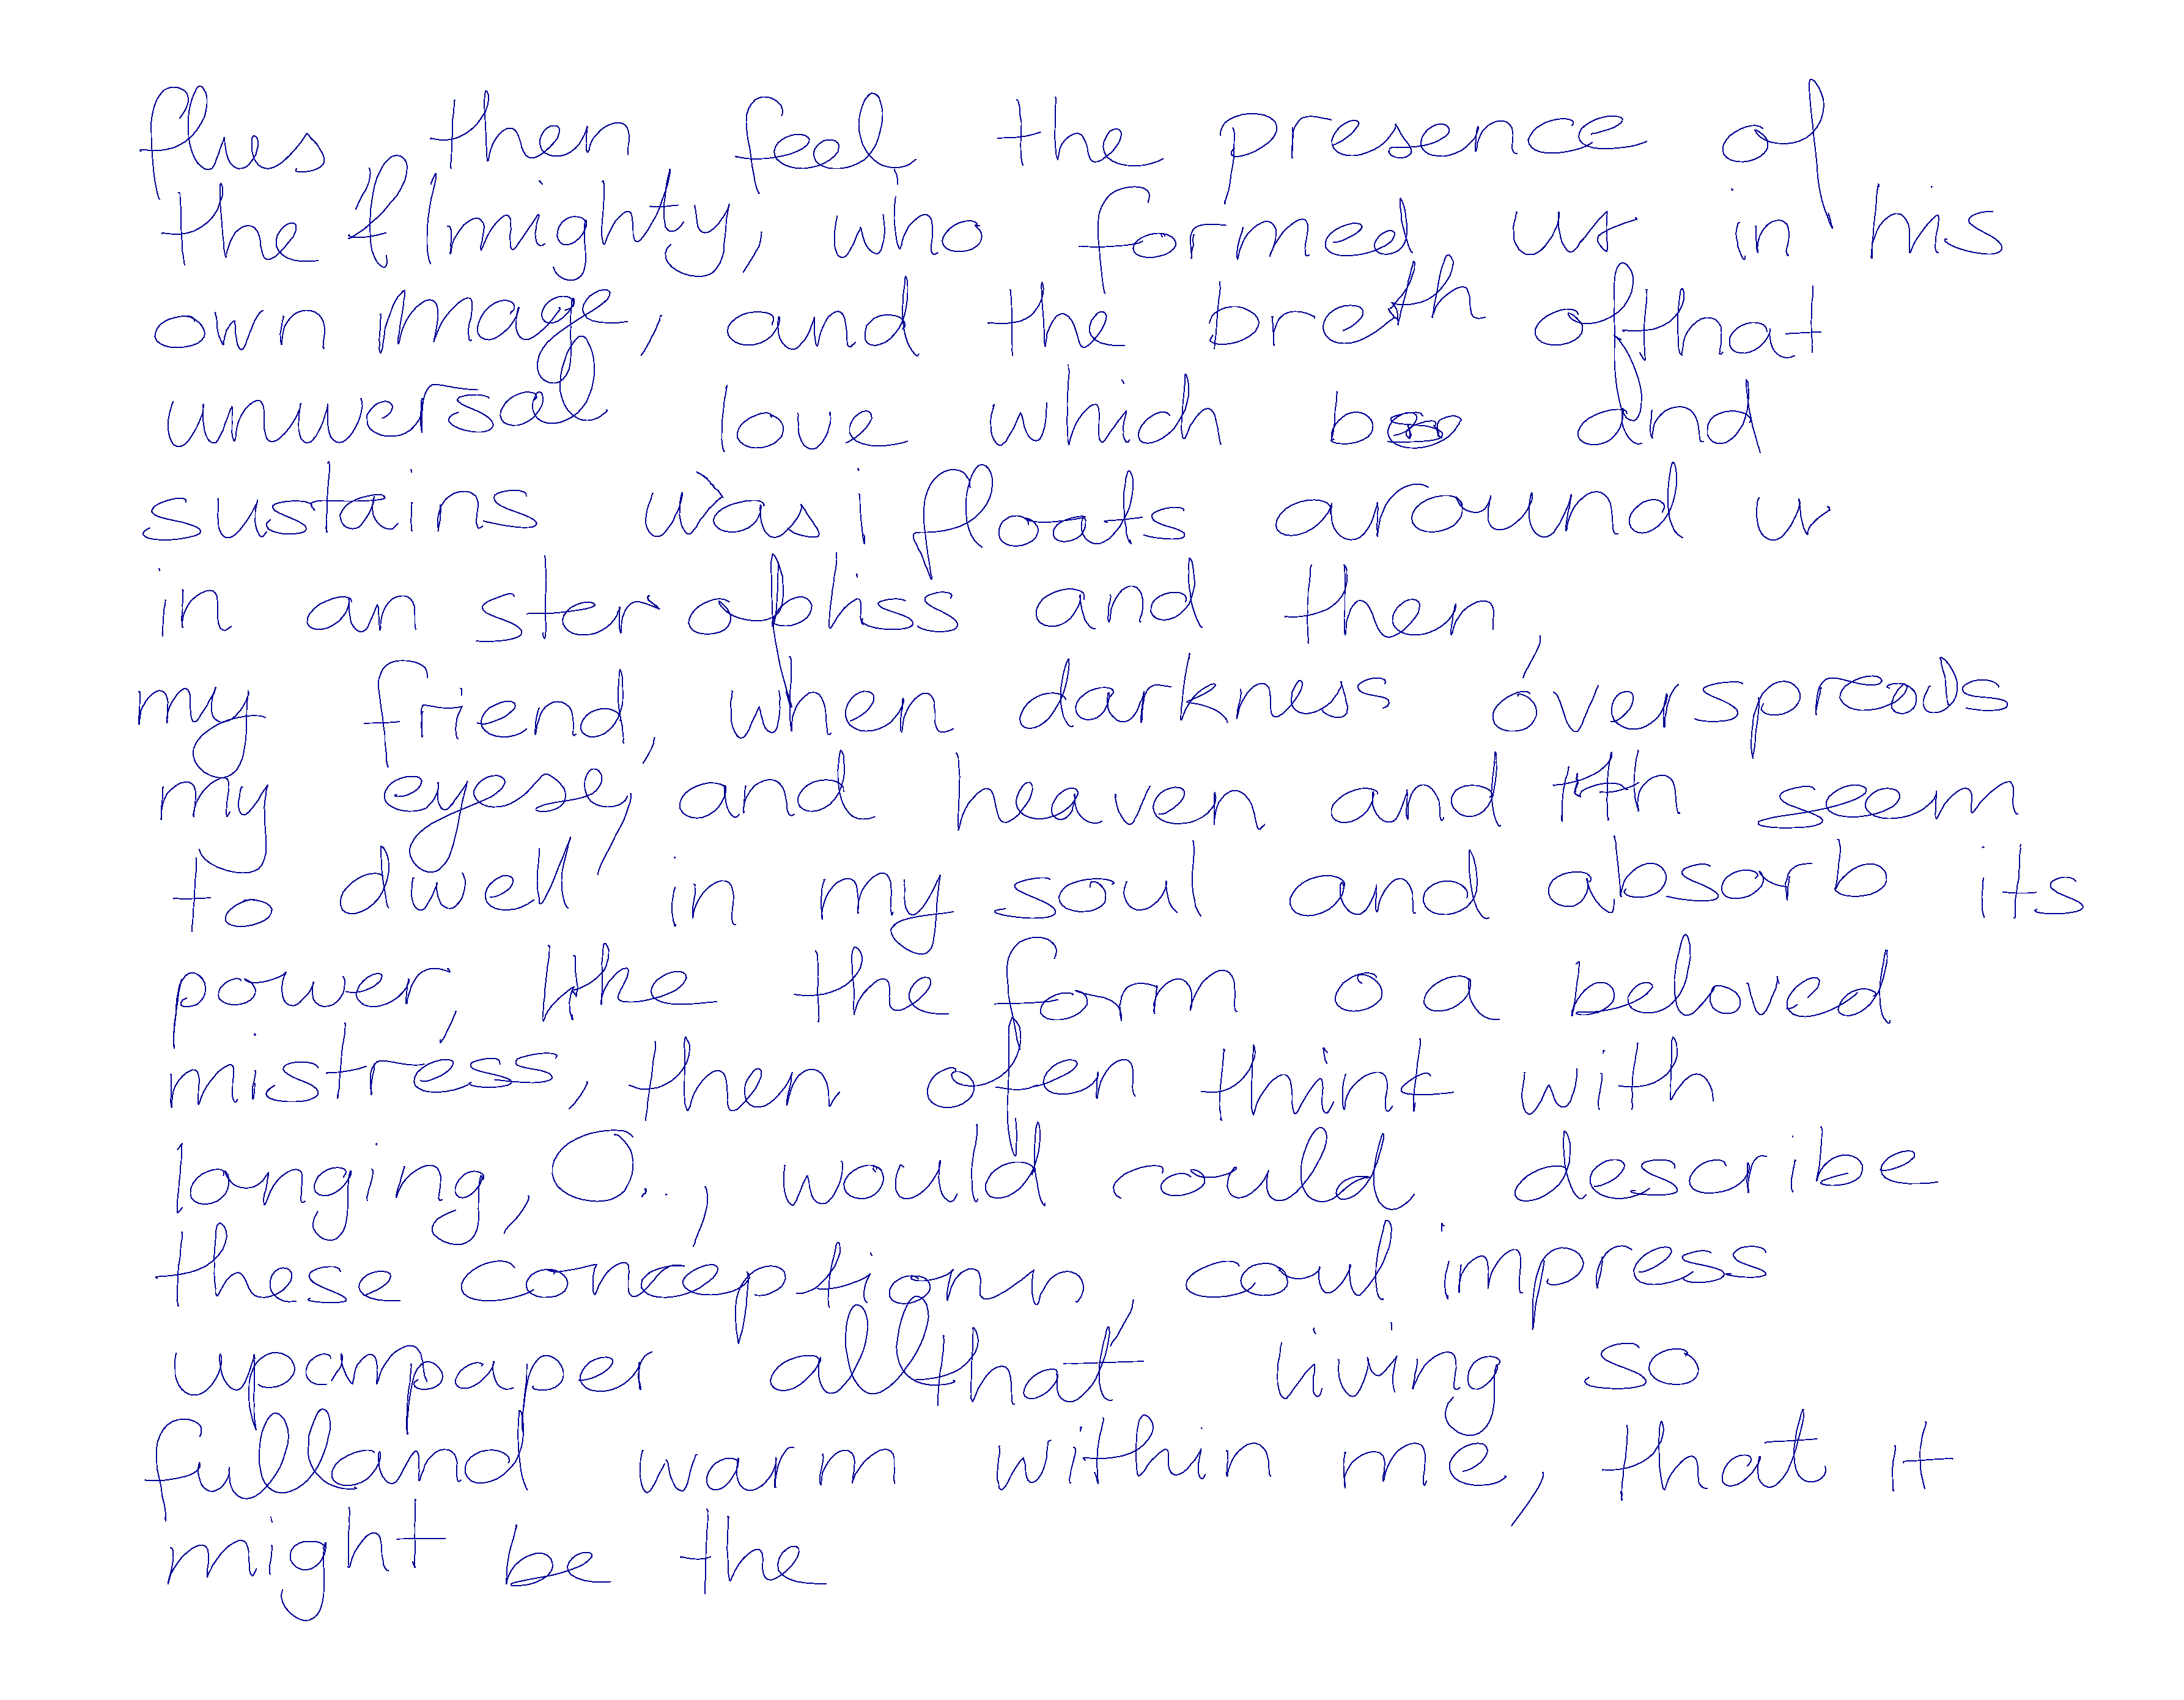 flies, then feel the presence of
the Almighty, who formed us in his
own mage, and the breth ofthat
universal love which and
sustains as floats around
in an bliss and then,
my friend, when darkness overspreads
my eyese, and heaven and seem
to dwell in my soul and absorb its
power, like the form o a beloved
mistress, then ofen think with
longing, O.., would could describe
these conceptions, coul impress
upon paper allthat living so
fulland warm within me, that it
might be the